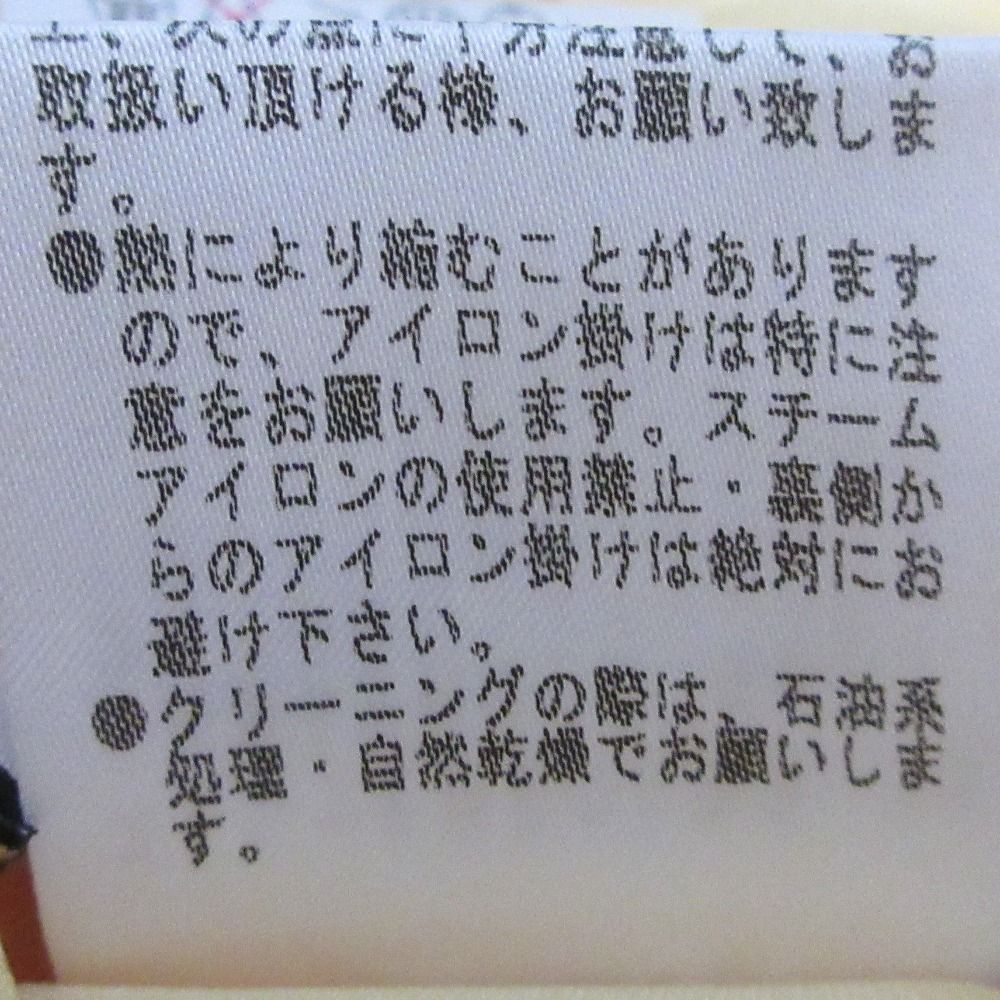 上、次の点に十分注意して、お
取扱い頂ける様、お願い致しま
す。
●熱により縮むことがあります
ので、アイロン掛けは特に注
意をお願いします。スチーム
アイロンの使用禁止・裏側か
らのアイロン掛けは絶対にお
避け下さい。
●クリーニングの際は、石油系
処理・自然乾燥でお願いしま
す。